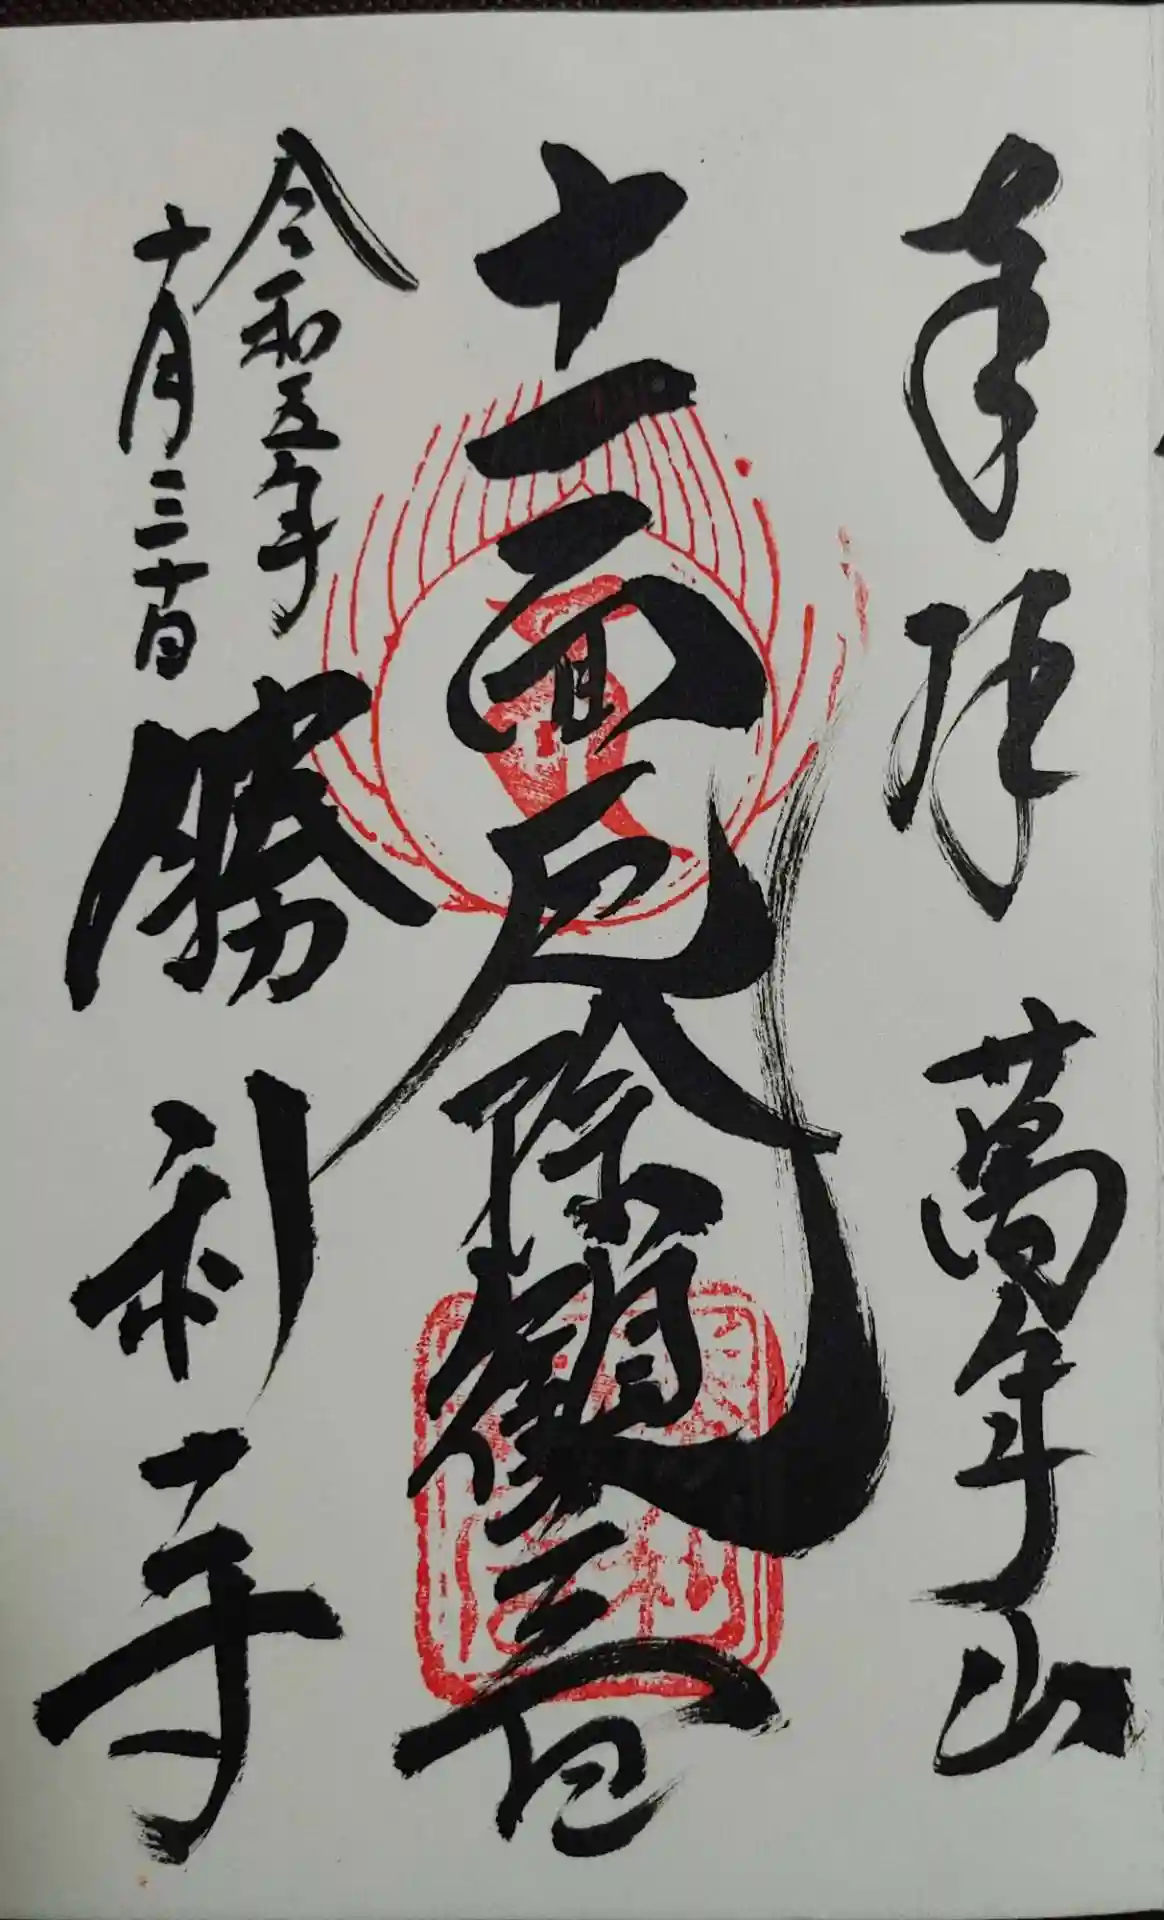 奉拝 萬年山
十一面厄除観音
令和五年
十月三十日
勝利寺